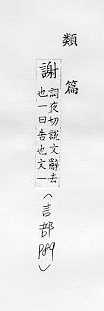 類篇
謝
詞夜切說文辭去
也一曰告也文一
(言部P89)